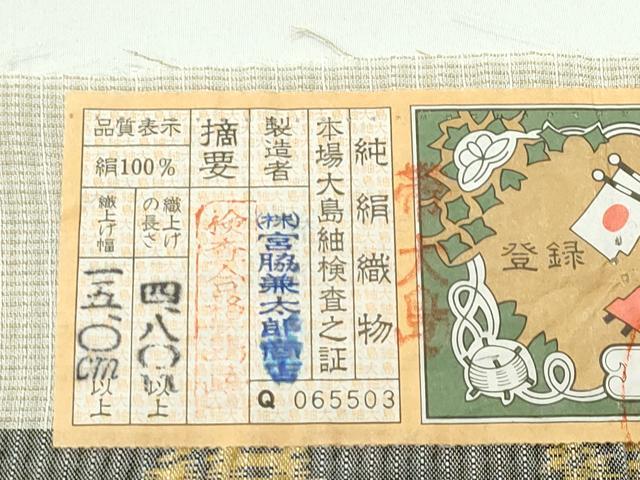 純絹織物
本場大島紬検査之証
製造者
(株)宮脇兼太郎商店
Q 065503
摘要
検査合格
品質表示
絹100%
織上げの長さ
四、八〇以上
織上げ幅
一五、〇cm以上
登録